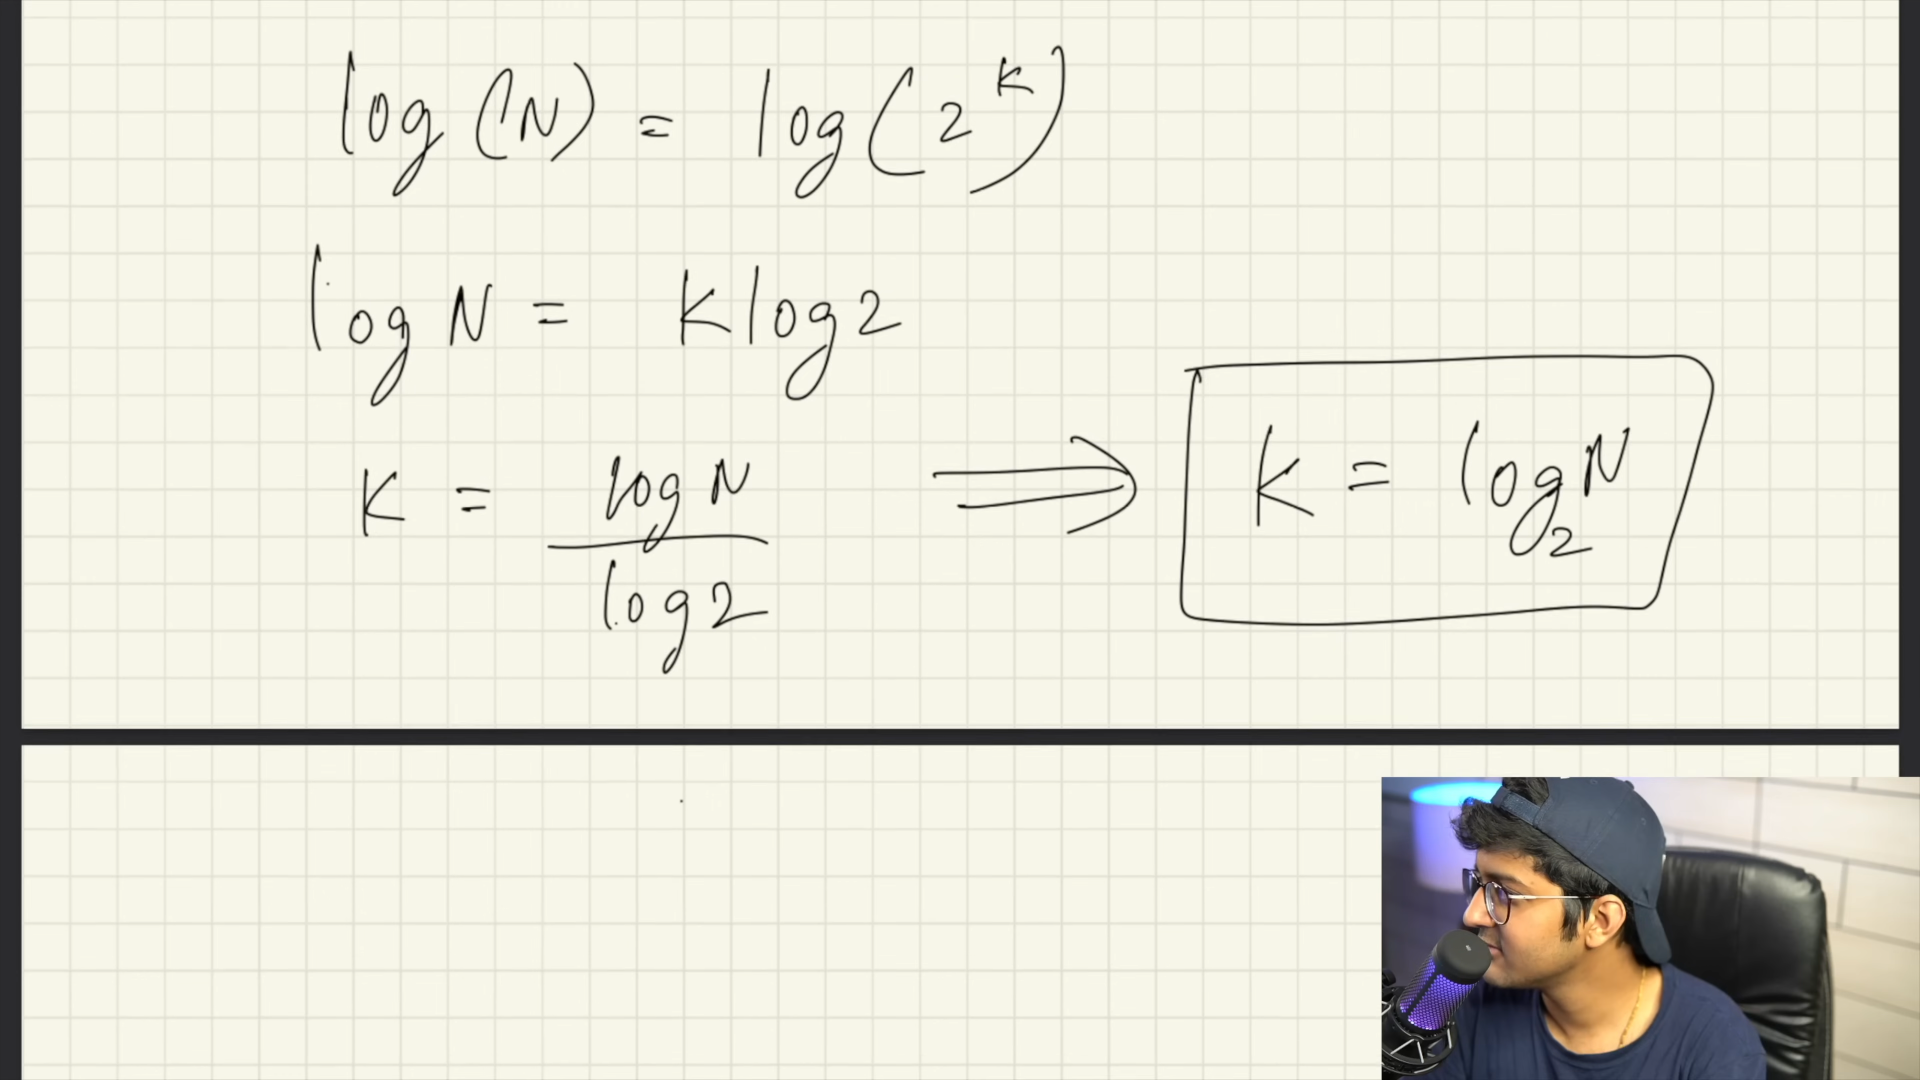 log (N) = log (2^K)
log N = K log 2
K = log N / log 2 ⟹ K = log₂ N